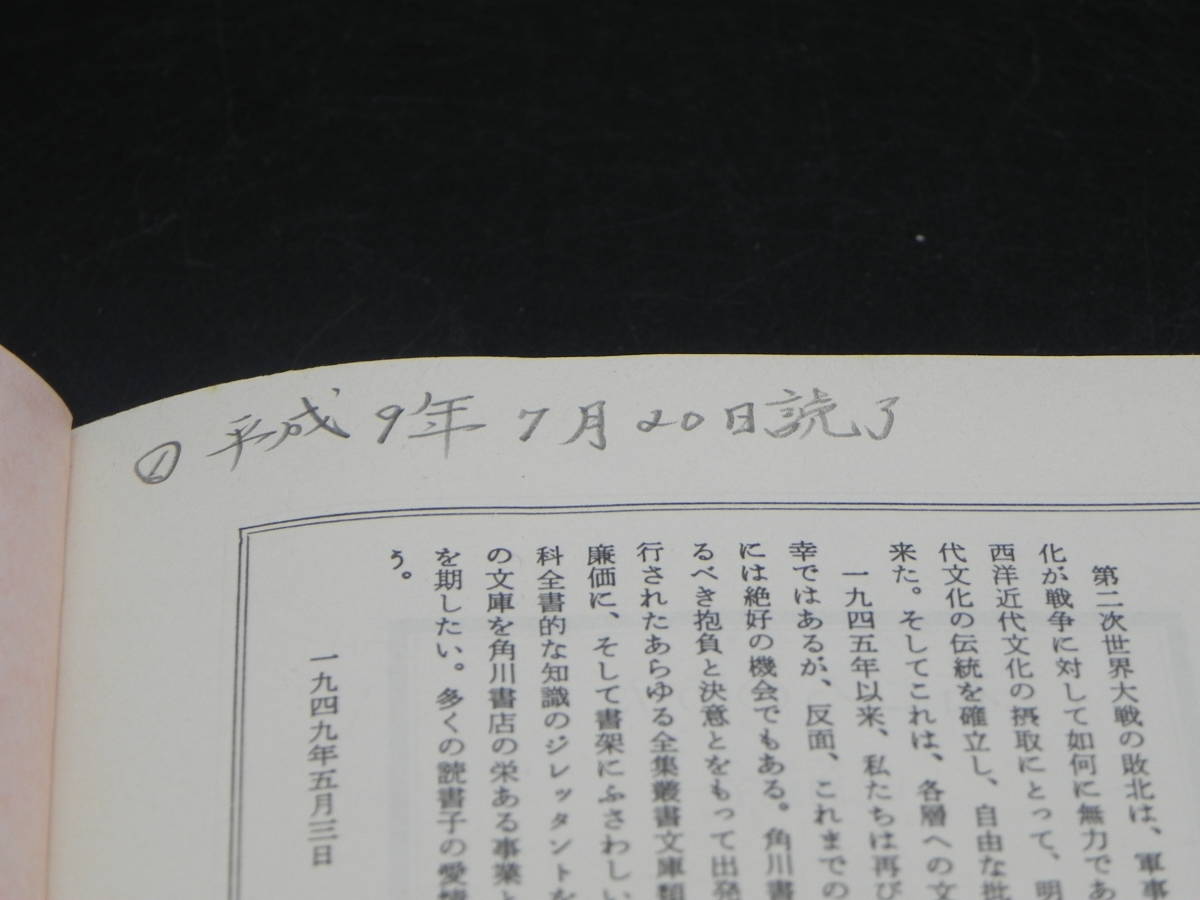 ① 平成9年7月20日読了
第二次世界大戦の敗北は、軍事
化が戦争に対して如何に無力であ
西洋近代文化の摂取にとって、明
代文化の伝統を確立し、自由な批
来た。そしてこれは、各層への文
一九四五年以来、私たちは再び
幸ではあるが、反面、これまでの
には絶好の機会でもある。角川書
るべき抱負と決意とをもって出発
行されたあらゆる全集叢書文庫類
廉価に、そして書架にふさわしい
科全書的な知識のジレッタントを
の文庫を角川書店の栄ある事業と
を期したい。多くの読書子の愛情
う。
一九四九年五月三日